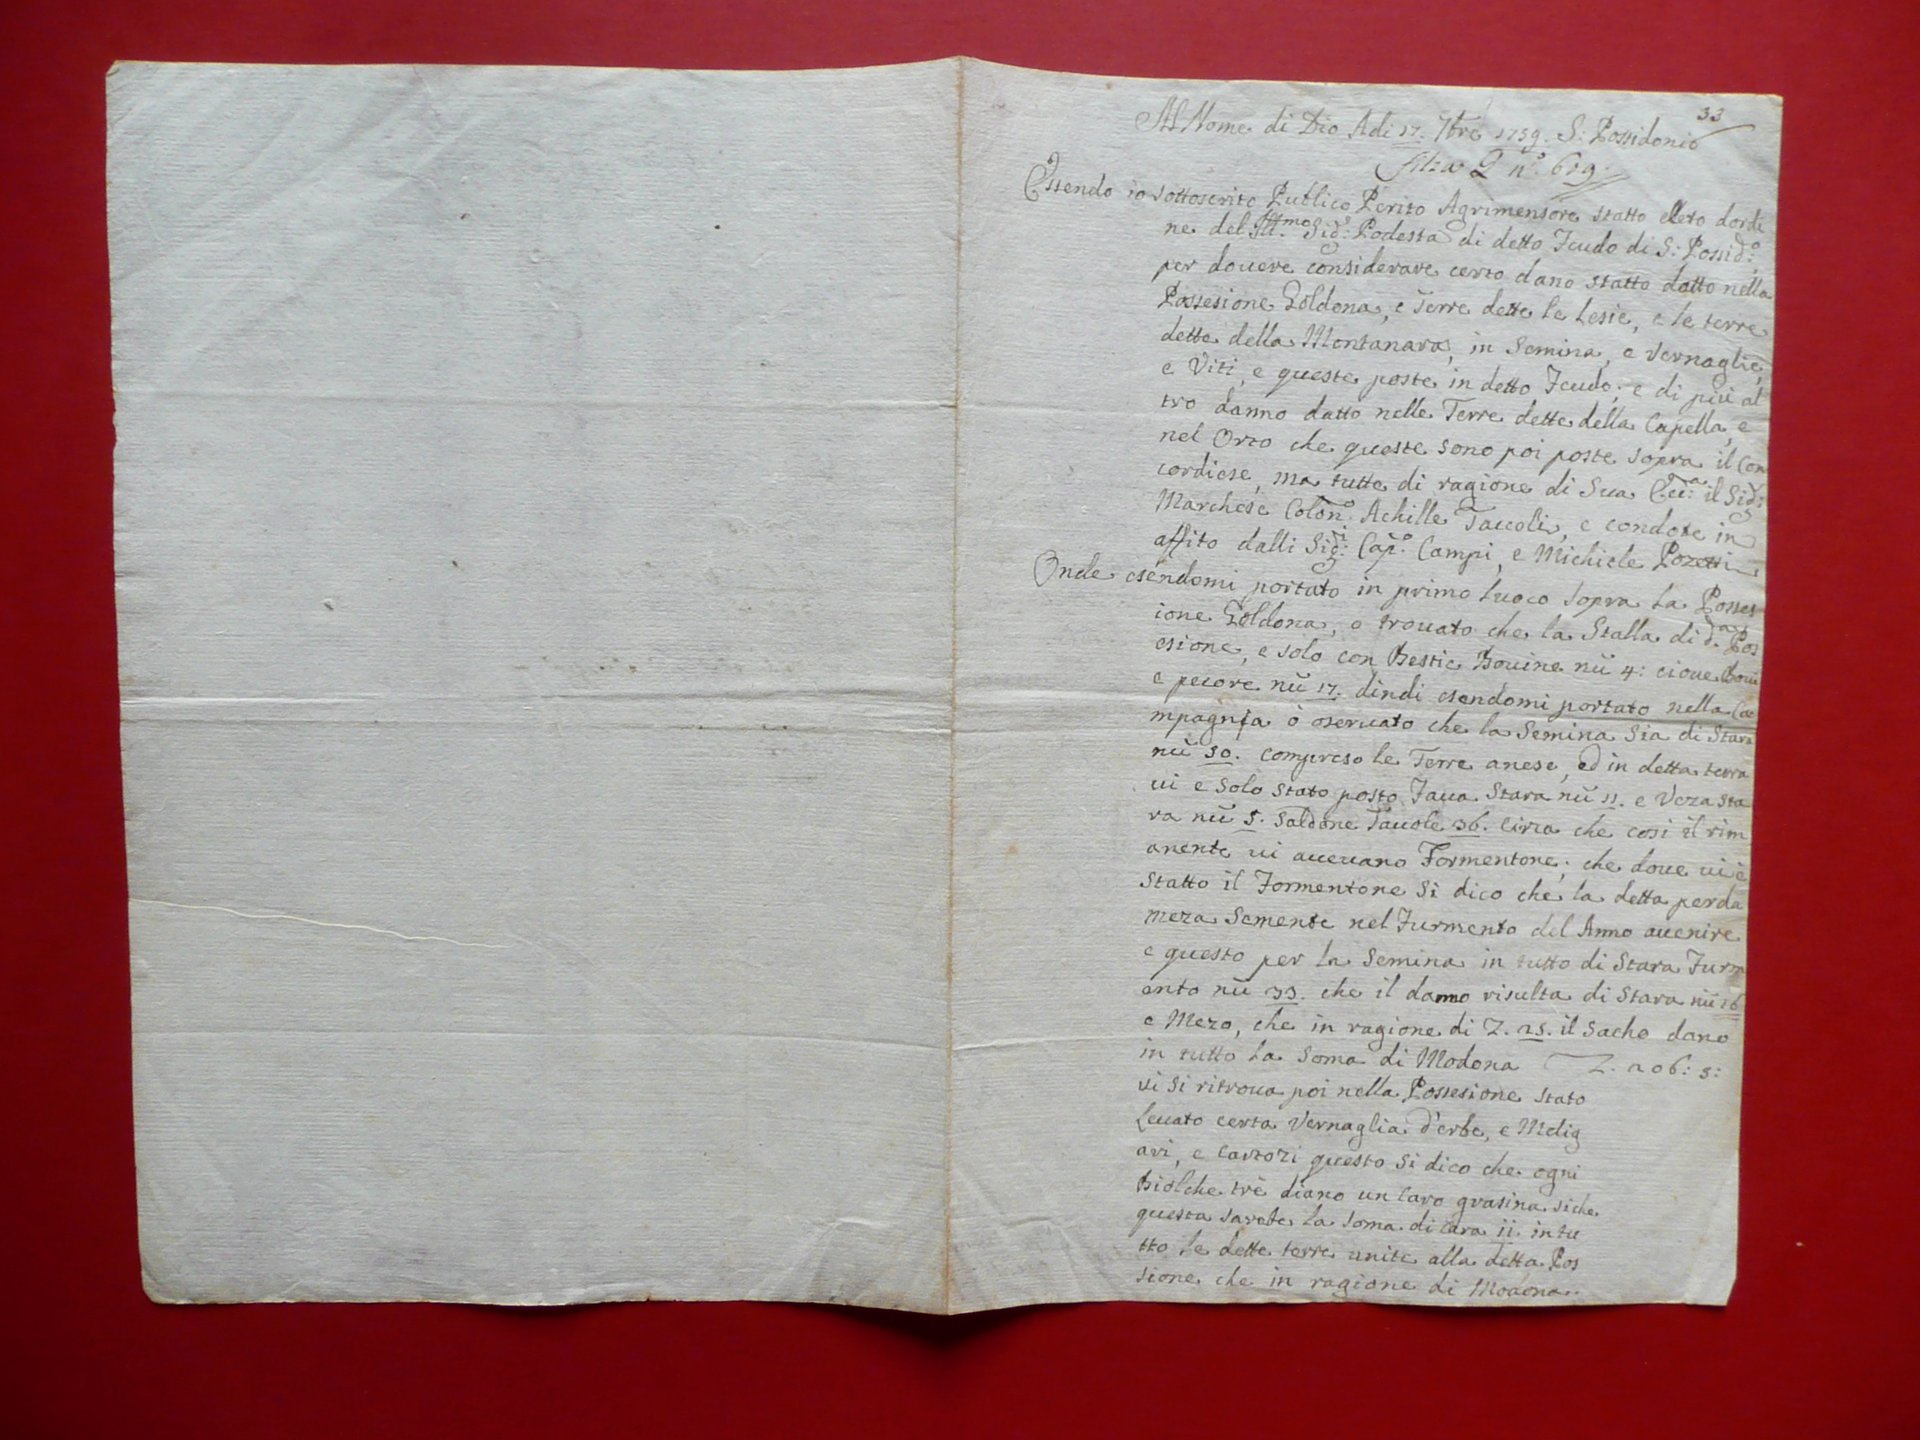 33
Al Nome di Dio Adi 17. 7bre 1759. S: Possidonio
Filza Q n.º 619.
Essendo io sottoscrito Publico Perito Agrimensore statto eleto dordi
ne del Ill.mo Sig.r Podesta di detto Feudo di S: Possid.o,
per douere considerare certo dano statto datto nella
Possesione Goldona, e Terre dette le Lesie, e le terre
dette della Montanara, in Semina, e Vernaglie,
e Viti, e queste poste in detto Feudo; e di più al
tro danno datto nelle Terre dette della Capella, e
nel Orto che queste sono poi poste sopra il Con
cordiese, ma tutte di ragione di Sua Ecc.a il Sig.r
Marchese Colon.o Achille Taccoli, e condote in
affito dalli Sig.i Cap.o Campi, e Michiele Pozetti
Onde esendomi portato in primo luoco sopra la Posses
ione Goldona, o trouato che la Stalla di d.a Pos
esione, e solo con Bestie Bouine nũ 4: cioue Boui
e pecore nũ 17. dindi esendomi portato nella Ca
mpagnia ò oseruato che la Semina Sia di Stara
nũ 50. compreso le Terre anese, ed in detta terra
ui e solo stato posto Faua Stara nũ 11. e Veza sta
ra nũ 5. Saldone Tauole 36. circa che cosi il rim
anente ui aueuano Formentone; che doue ui è
statto il Formentone si dico che la detta perda
meza Semente nel Furmento del Anno auenire
e questo per la Semina in tutto di Stara Furm
ento nũ 33. che il danno risulta di Stara nũ 16
e Mezo, che in ragione di L. 25. il Sacho dano
in tutto la Soma di Modona L. 206: 5:
ui si ritroua poi nella Possesione stato
Leuato certa Vernaglia d'erbe, e Melig
ari, e Cartozi questo si dico che ogni
Biolche trè diano un Caro grasina siche
questa sarate la soma di Cara 11. in tu
tto le dette terre unite alla detta Pos
sione che in ragione di Modona